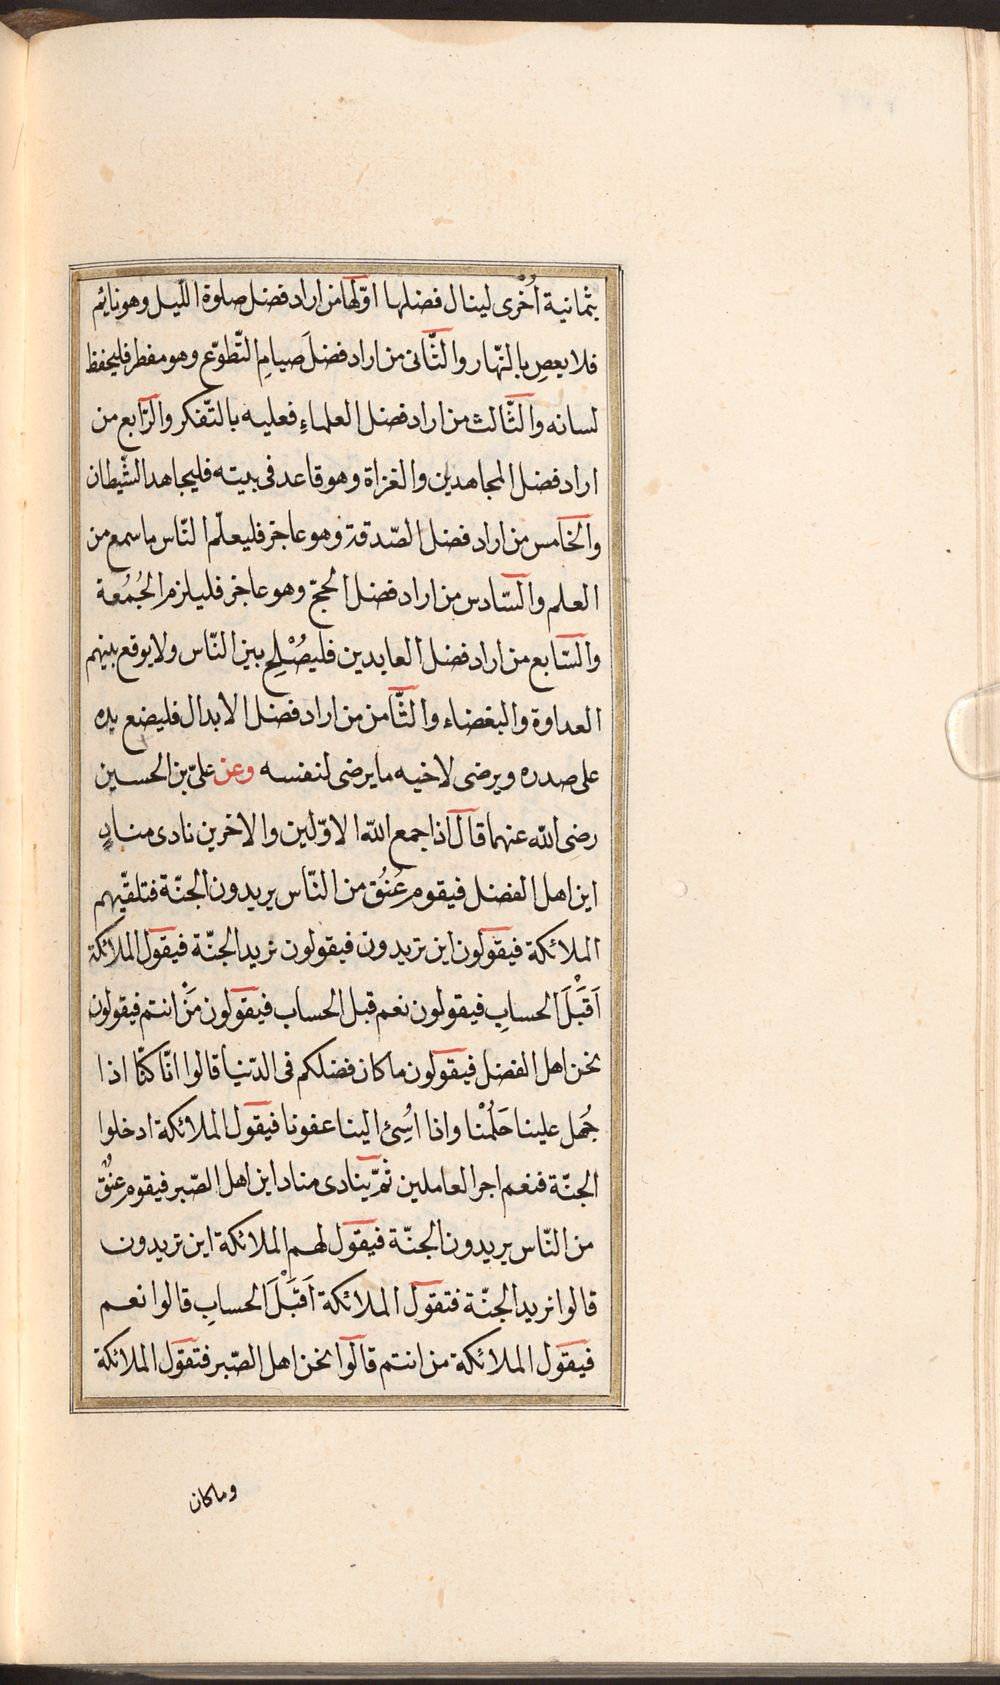 بثمانية اُخْرى لينال فضلها اوّلها من اراد فضل صلوة اللّيل وهو نايم
فلا يعصِ بالنّهار والثّانى من اراد فضلَ صيامِ التّطوّع وهو مفطر فليحفظ
لسانه والثّالث من اراد فضل العلماءِ فعليه بالتّفكر والرّابع من
اراد فضل المجاهدين والغزاة وهو قاعد فى بيته فليجاهد الشّيطان
والخامس من اراد فضل الصّدقة وهو عاجز فليعلّم النّاس ما سمع من
العلم والسّادس من اراد فضل الحجّ وهو عاجز فليلزم الجُمُعة
والسّابع من اراد فضل العابدين فليصُْلِح بين النّاس ولا يوقع بينهم
العداوة والبغضاء والثّامن من اراد فضل الابدال فليضع يده
على صدره ويرضى لاخيه ما يرضى لنفسه وعن علىّ بن الحسين
رضى الله عنهما قال اذا جمع الله الاوّلين والاخرين نادى منادٍ
اين اهل الفضل فيقوم عُنُق من النّاس يريدون الجنّة فتلقّيهم
الملائكة فيقولون اين تريدون فيقولون نريد الجنّة فيقول الملائكة
اَقَبْلَ الحسابِ فيقولون نعم قبل الحساب فيقولون مَنْ انتم فيقولون
نحن اهل الفضل فيقولون ما كان فضلكم فى الدّنيا قالوا انّا كنّا اذا
جُهل علينا حَلُمْنا واذا اُسِئَ الينا عفونا فيقول الملائكة ادخلوا
الجنّة فنعم اجر العاملين ثمّ ينادى مناد اين اهل الصّبر فيقوم عنُقٌ
من النّاس يريدون الجنّة فيقول لهم الملائكة اين تريدون
قالوا نريد الجنّة فتقول الملائكة اَقَبْلَ الحسابِ قالوا نعم
فيقول الملائكة من انتم قالوا نحن اهل الصّبر فتقول الملائكة
وما كان